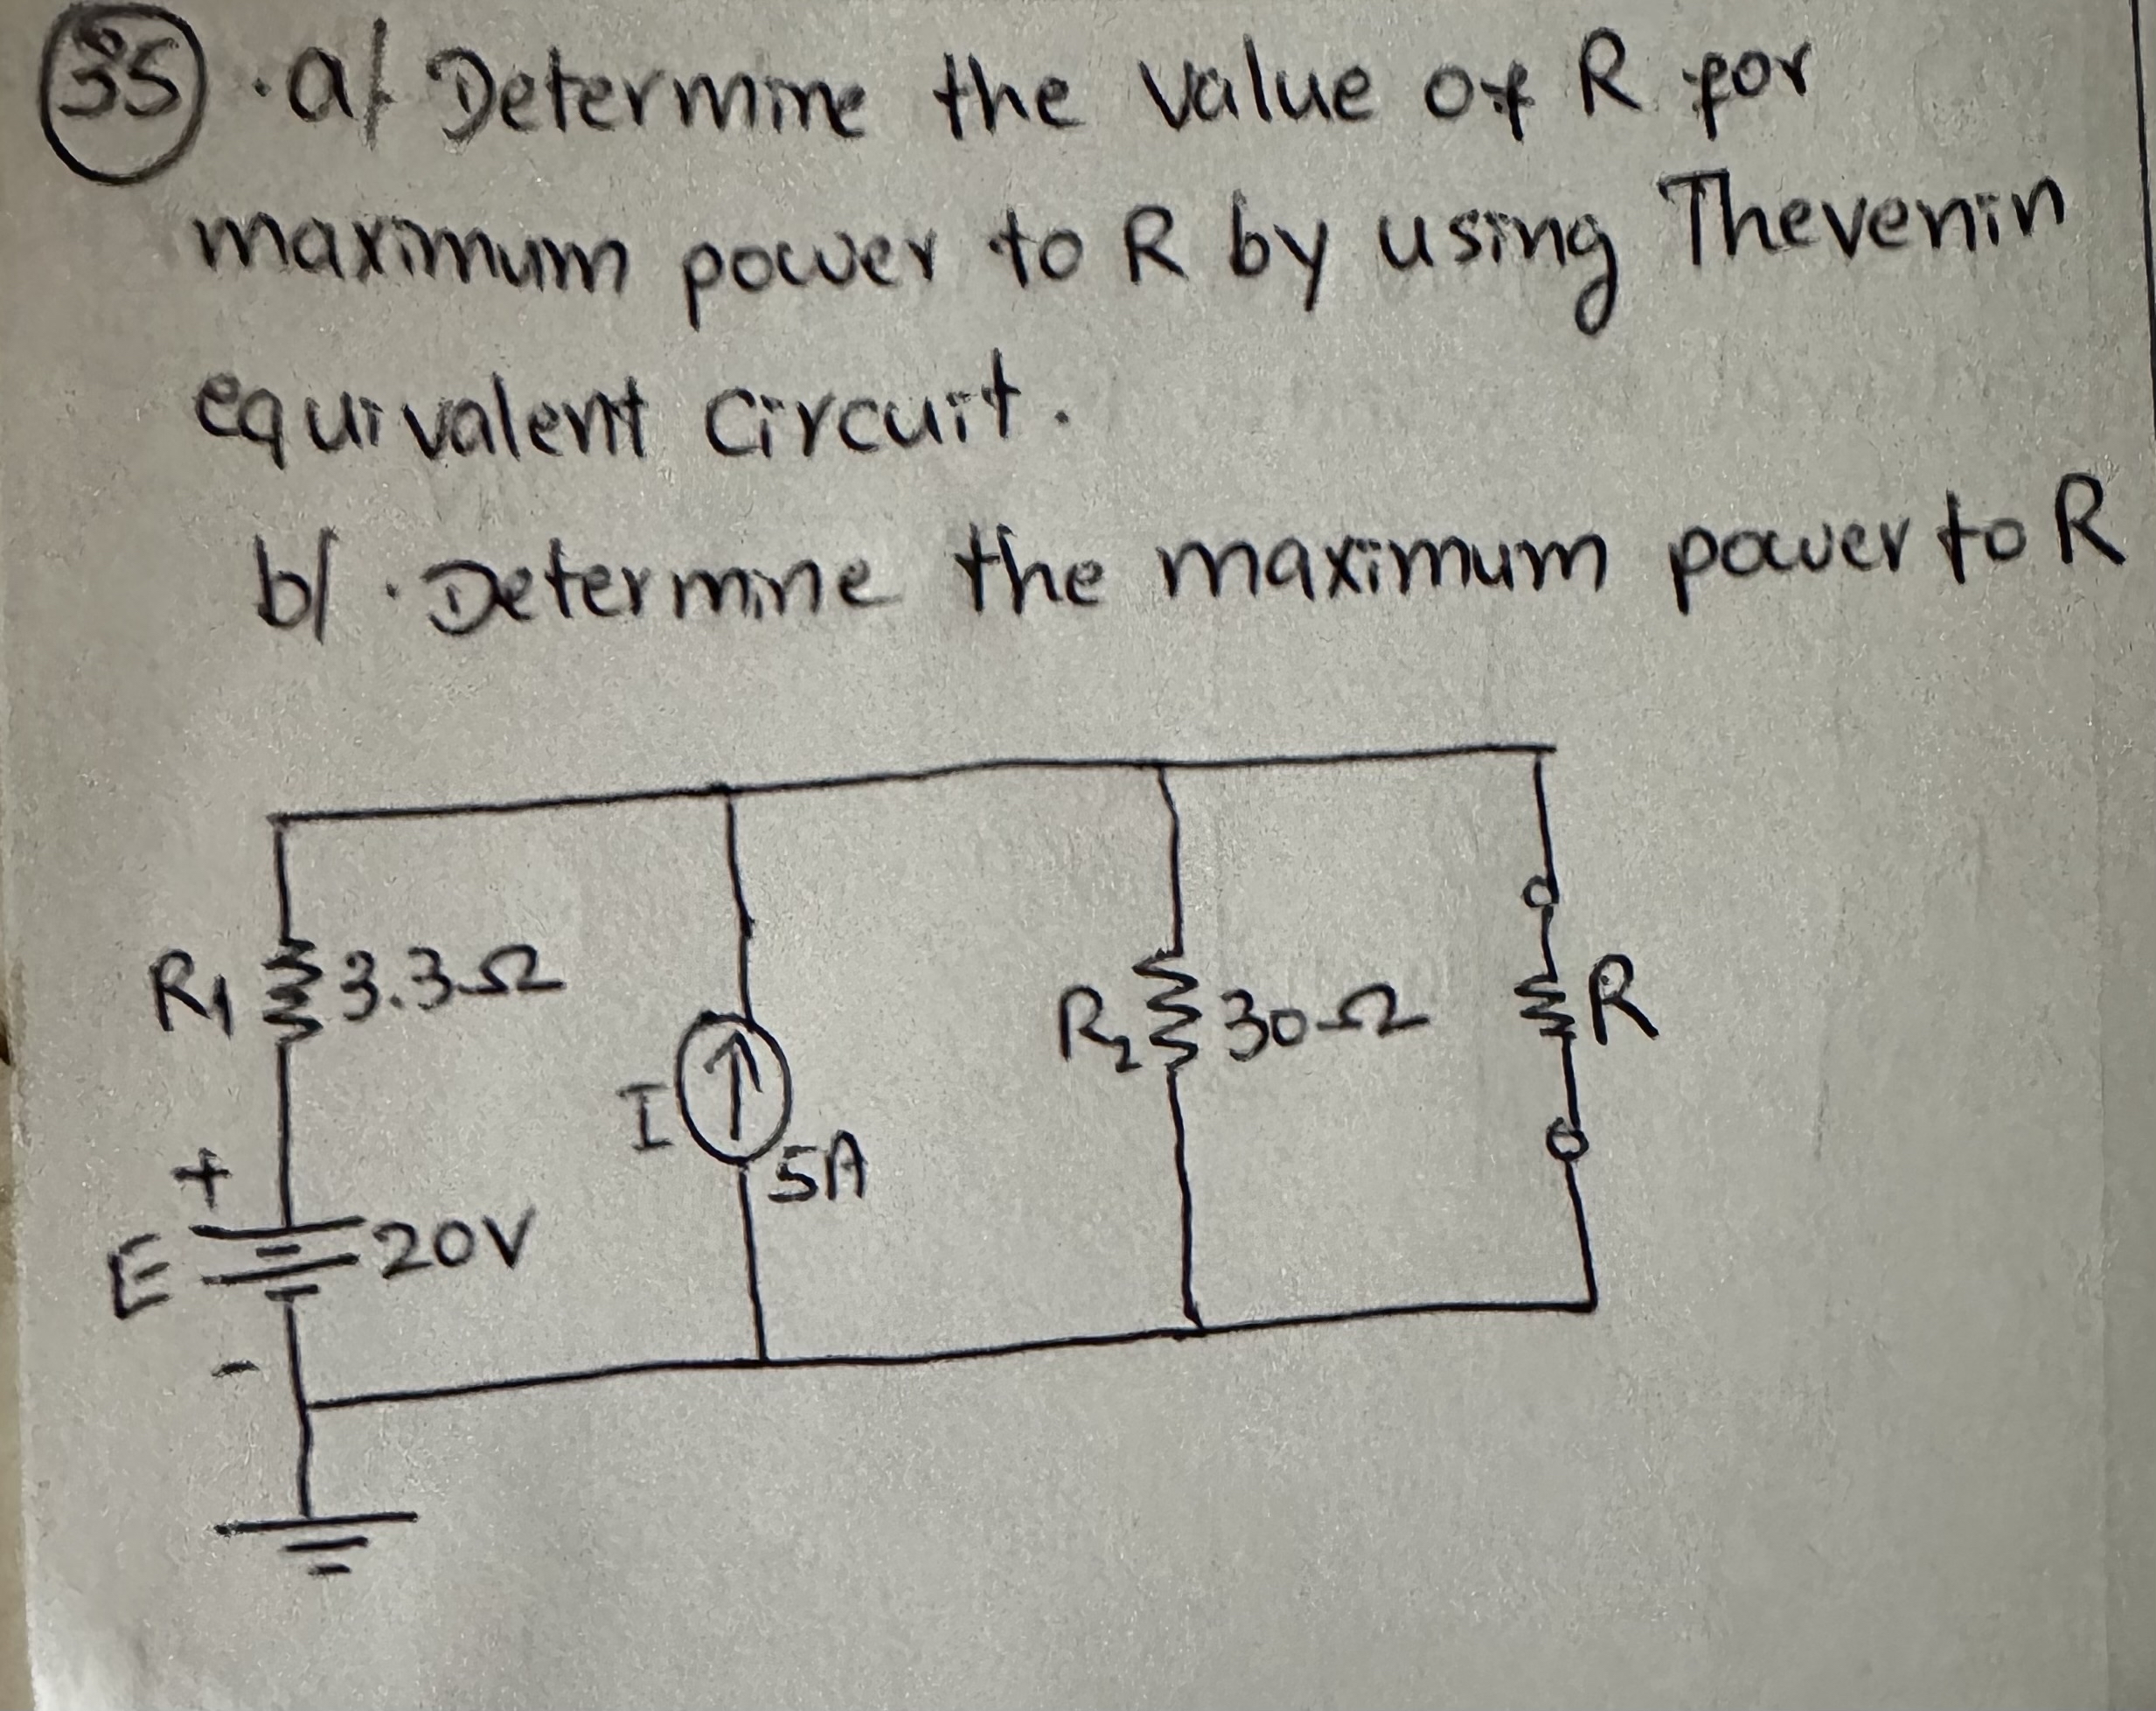 35 . a/ Determine the value of R for
maximum power to R by using Thevenin
equivalent circuit.
b/ . Determine the maximum power to R
R1 3.3Ω
I
5A
R2 30Ω
R
+
E 20V
-